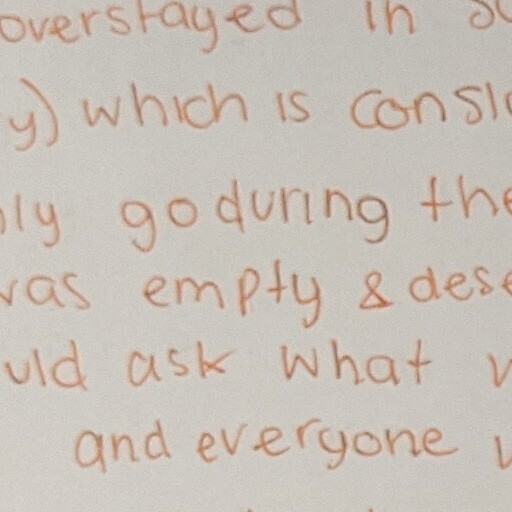 overstayed in
y) which is
ly go during the
was empty &
uld ask what
and everyone